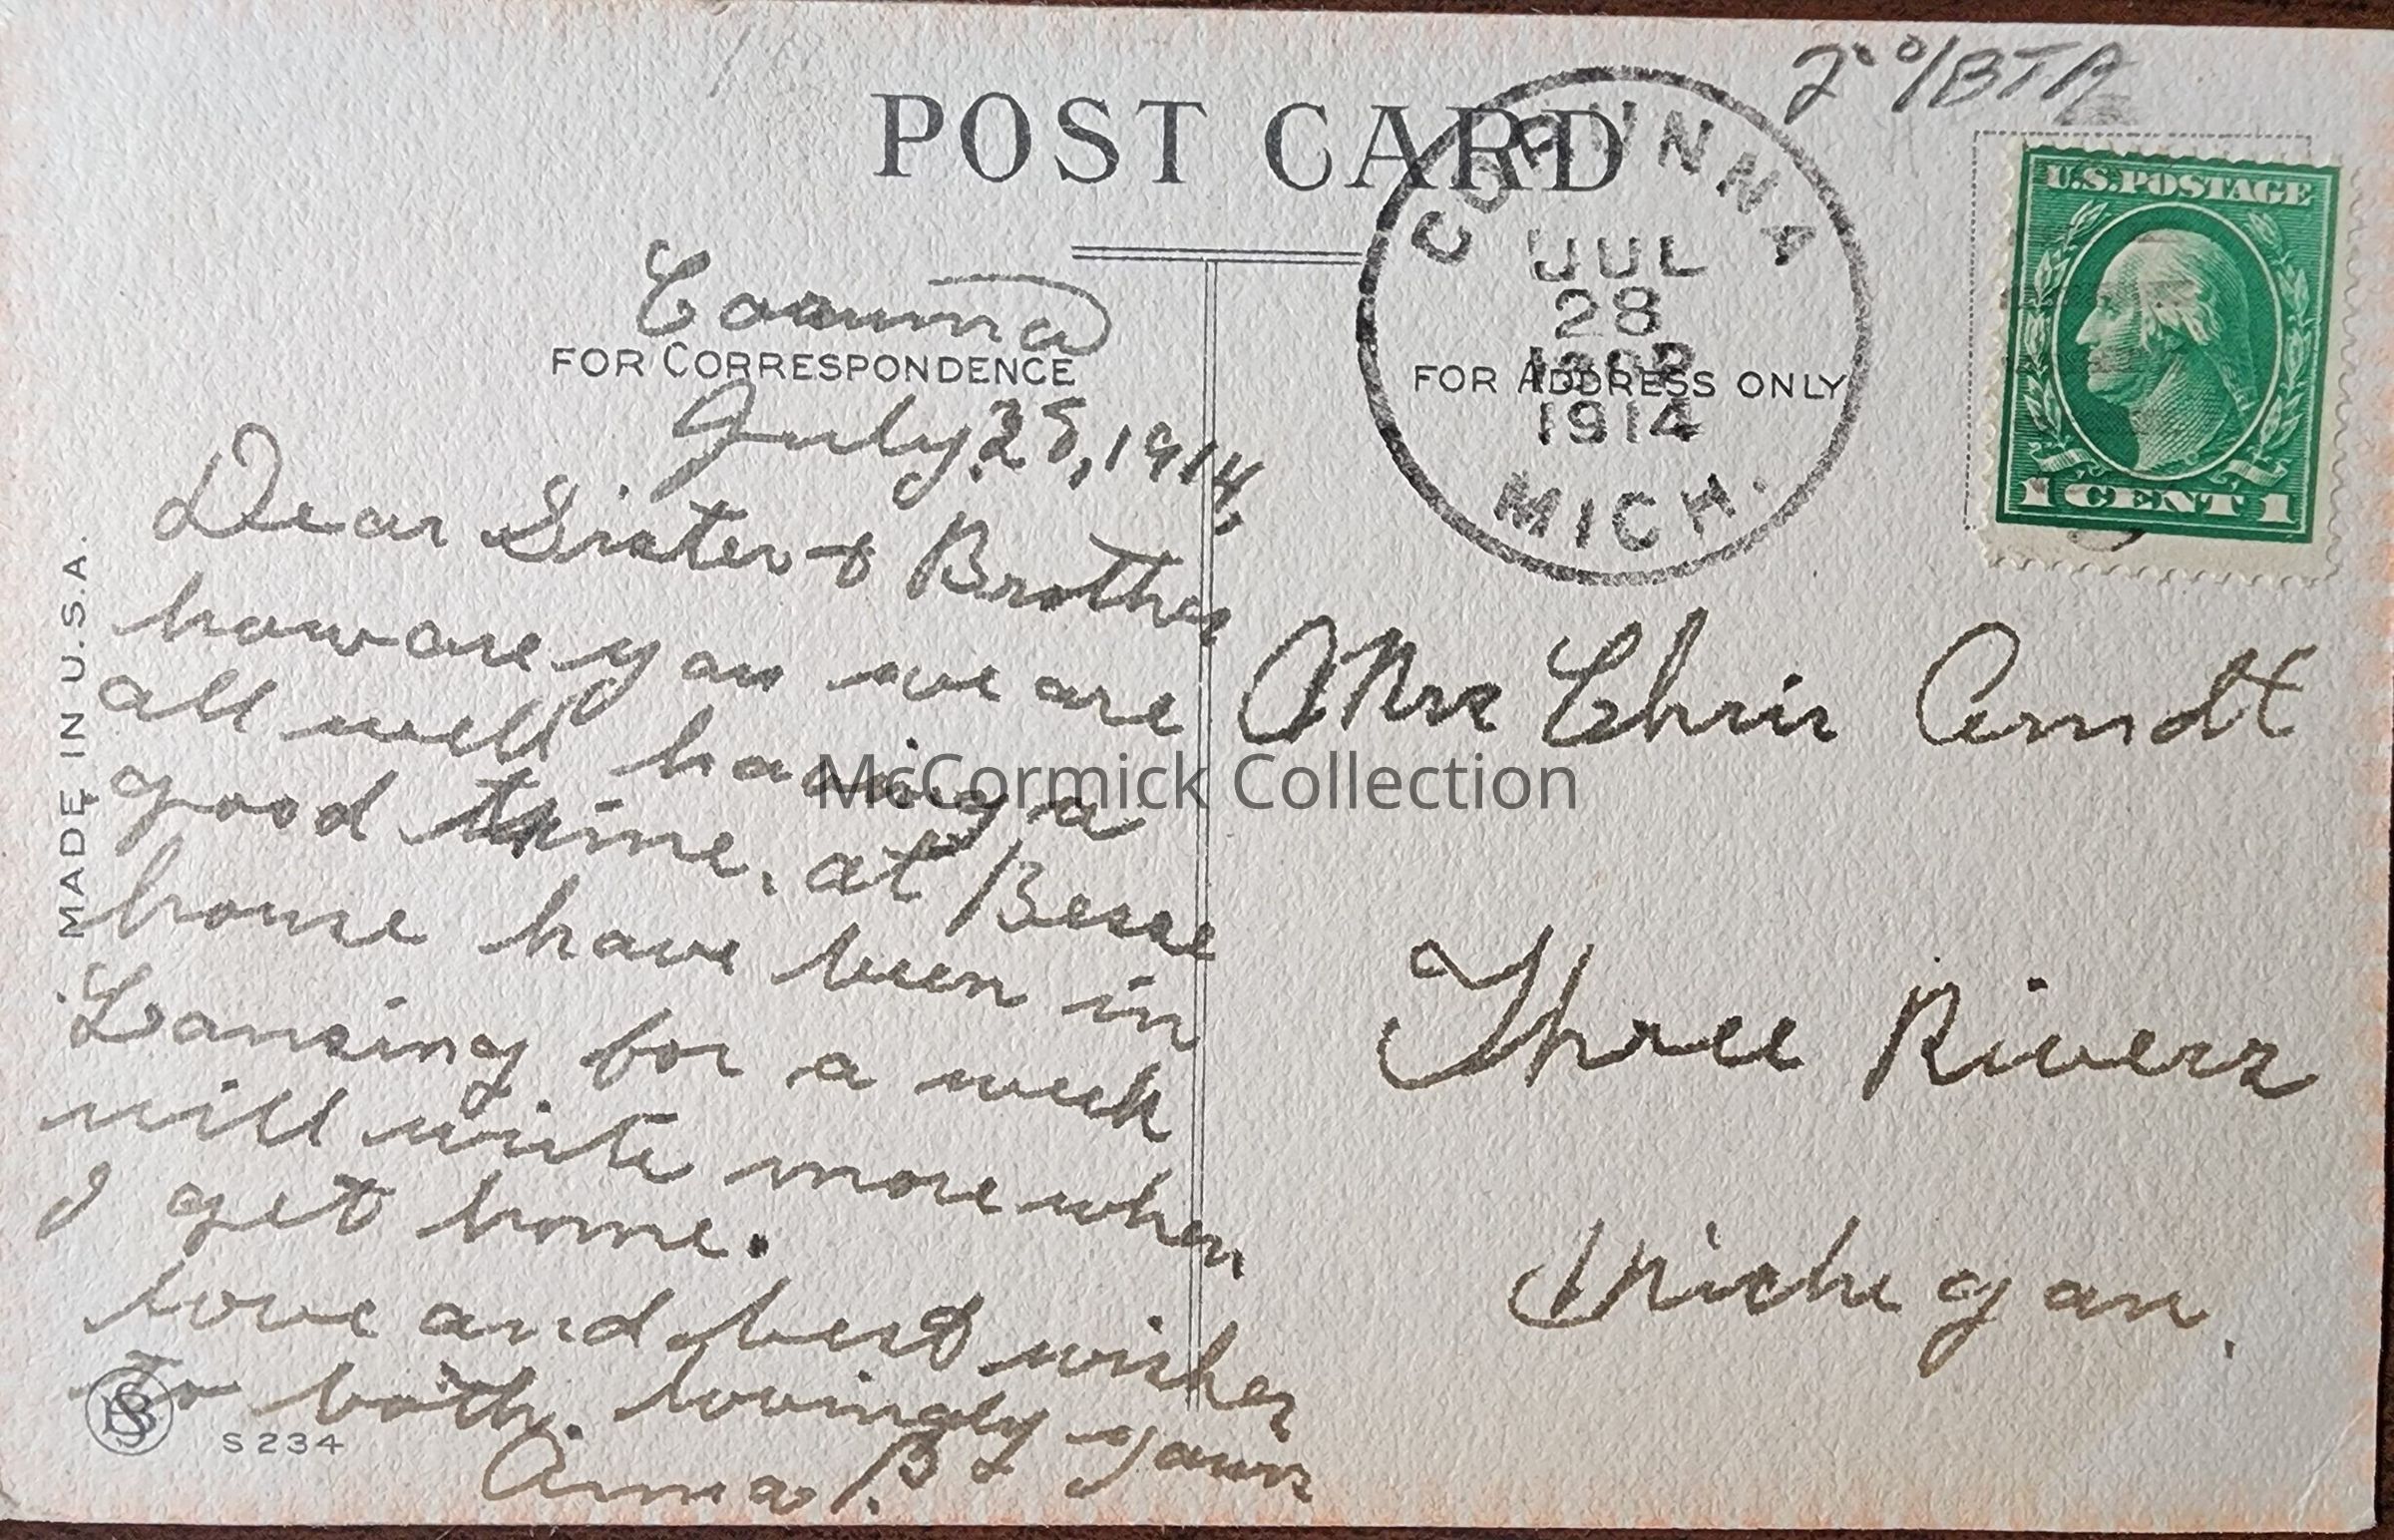 2⁰⁰/BTA
POST CARD
CORUNNA
JUL
28
1914
MICH.
U.S. POSTAGE
1 CENT 1
Corunna
FOR CORRESPONDENCE
FOR ADDRESS ONLY
July. 28, 1914,
Dear Sister & Brother
how are you we are
all well having a
good time. at Besse
house have been in
Lansing for a week
will write more when
I get home.
love and best wishes
To both. lovingly yours
Anna B.
Mrs Chris Arndt
Three Rivers
Michigan.
MADE IN U.S.A.
SB
S 234
McCormick Collection